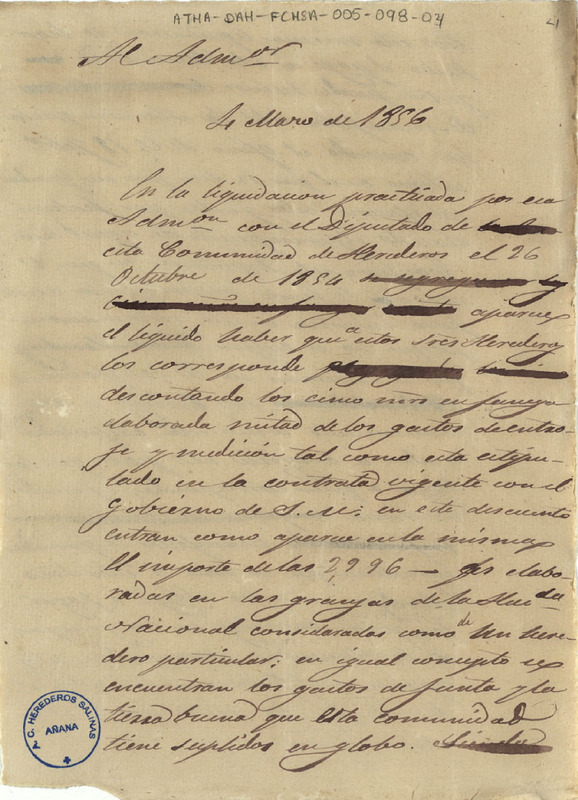 ATHA-DAH-FCHSA-005-098-04
4
Al Admor
4 Marzo de 1856
En la liquidacion practicada por esa
Admon con el Diputado de
esta Comunidad de Herederos el 26
Octubre de 1854 se agregaron
aparece
el líquido haber que a estos Sres Herederos
los corresponde
descontando los cinco mrs en fanega
elaborada mitad de los gastos de entro-
je y medición tal como esta estipu-
lado en la contrata vigente con el
Gobierno de S. M.: en este descuento
entran como aparece en la misma
El importe de las 2996 — fgs elabo-
radas en las granjas de la Hacda
Nacional consideradas como de un here-
dero particular; en igual concepto se
encuentran los gastos de Junta y la
tierra buena que esta comunidad
tiene suplidos en globo.
C. HEREDEROS SALINAS
AÑANA